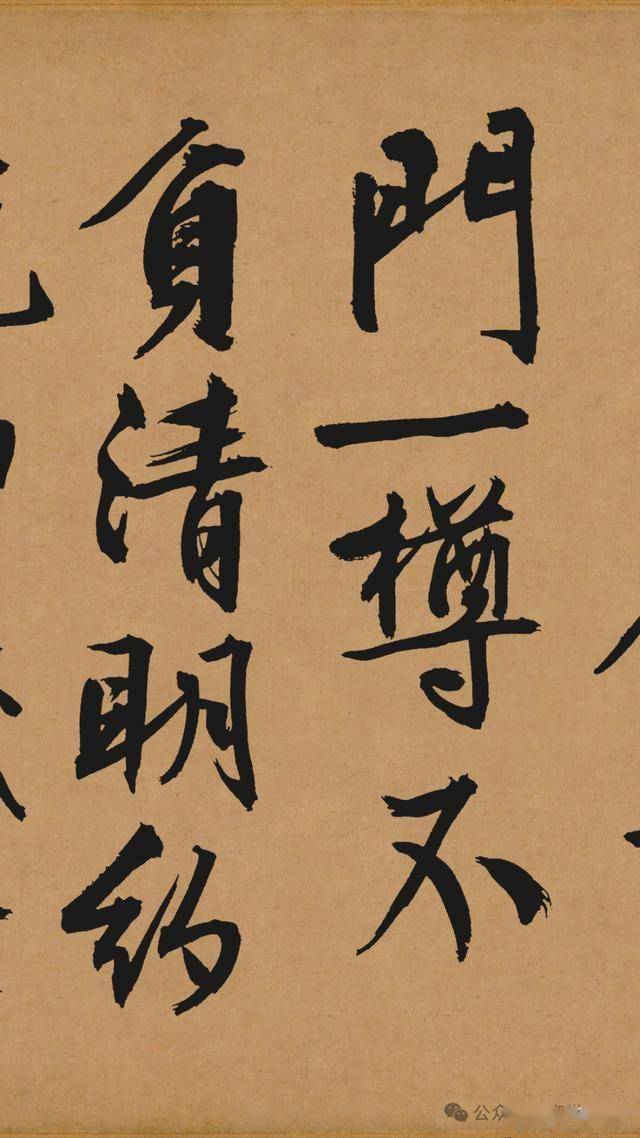 門一樽不
負清明約
公众